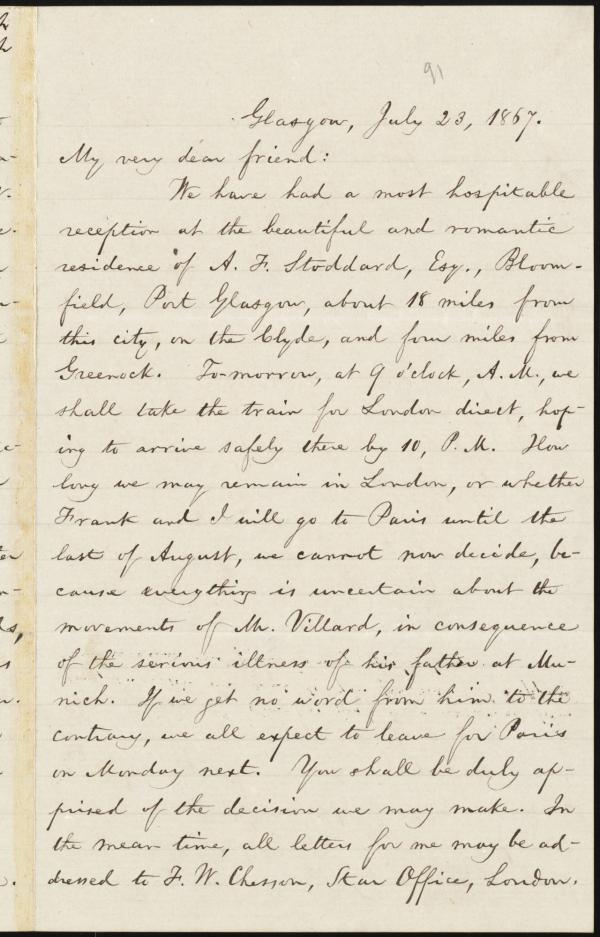 91
Glasgow, July 23, 1867.
My very dear friend:
We have had a most hospitable
reception at the beautiful and romantic
residence of A. F. Stoddard, Esq., Bloom-
field, Port Glasgow, about 18 miles from
this city, on the Clyde, and four miles from
Greenock. To-morrow, at 9 o'clock, A. M., we
shall take the train for London direct, hop-
ing to arrive safely there by 10, P. M. How
long we may remain in London, or whether
Frank and I will go to Paris until the
last of August, we cannot now decide, be-
cause everything is uncertain about the
movements of Mr. Villard, in consequence
of the serious illness of his father at Mu-
nich. If we get no word from him to the
contrary, we all expect to leave for Paris
on Monday next. You shall be duly ap-
prised of the decision we may make. In
the mean time, all letters for me may be ad-
dressed to F. W. Chesson, Star Office, London.